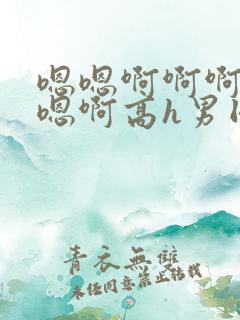 嗯嗯啊啊啊
嗯啊高h男
青衣無雙
未经同意禁止转载